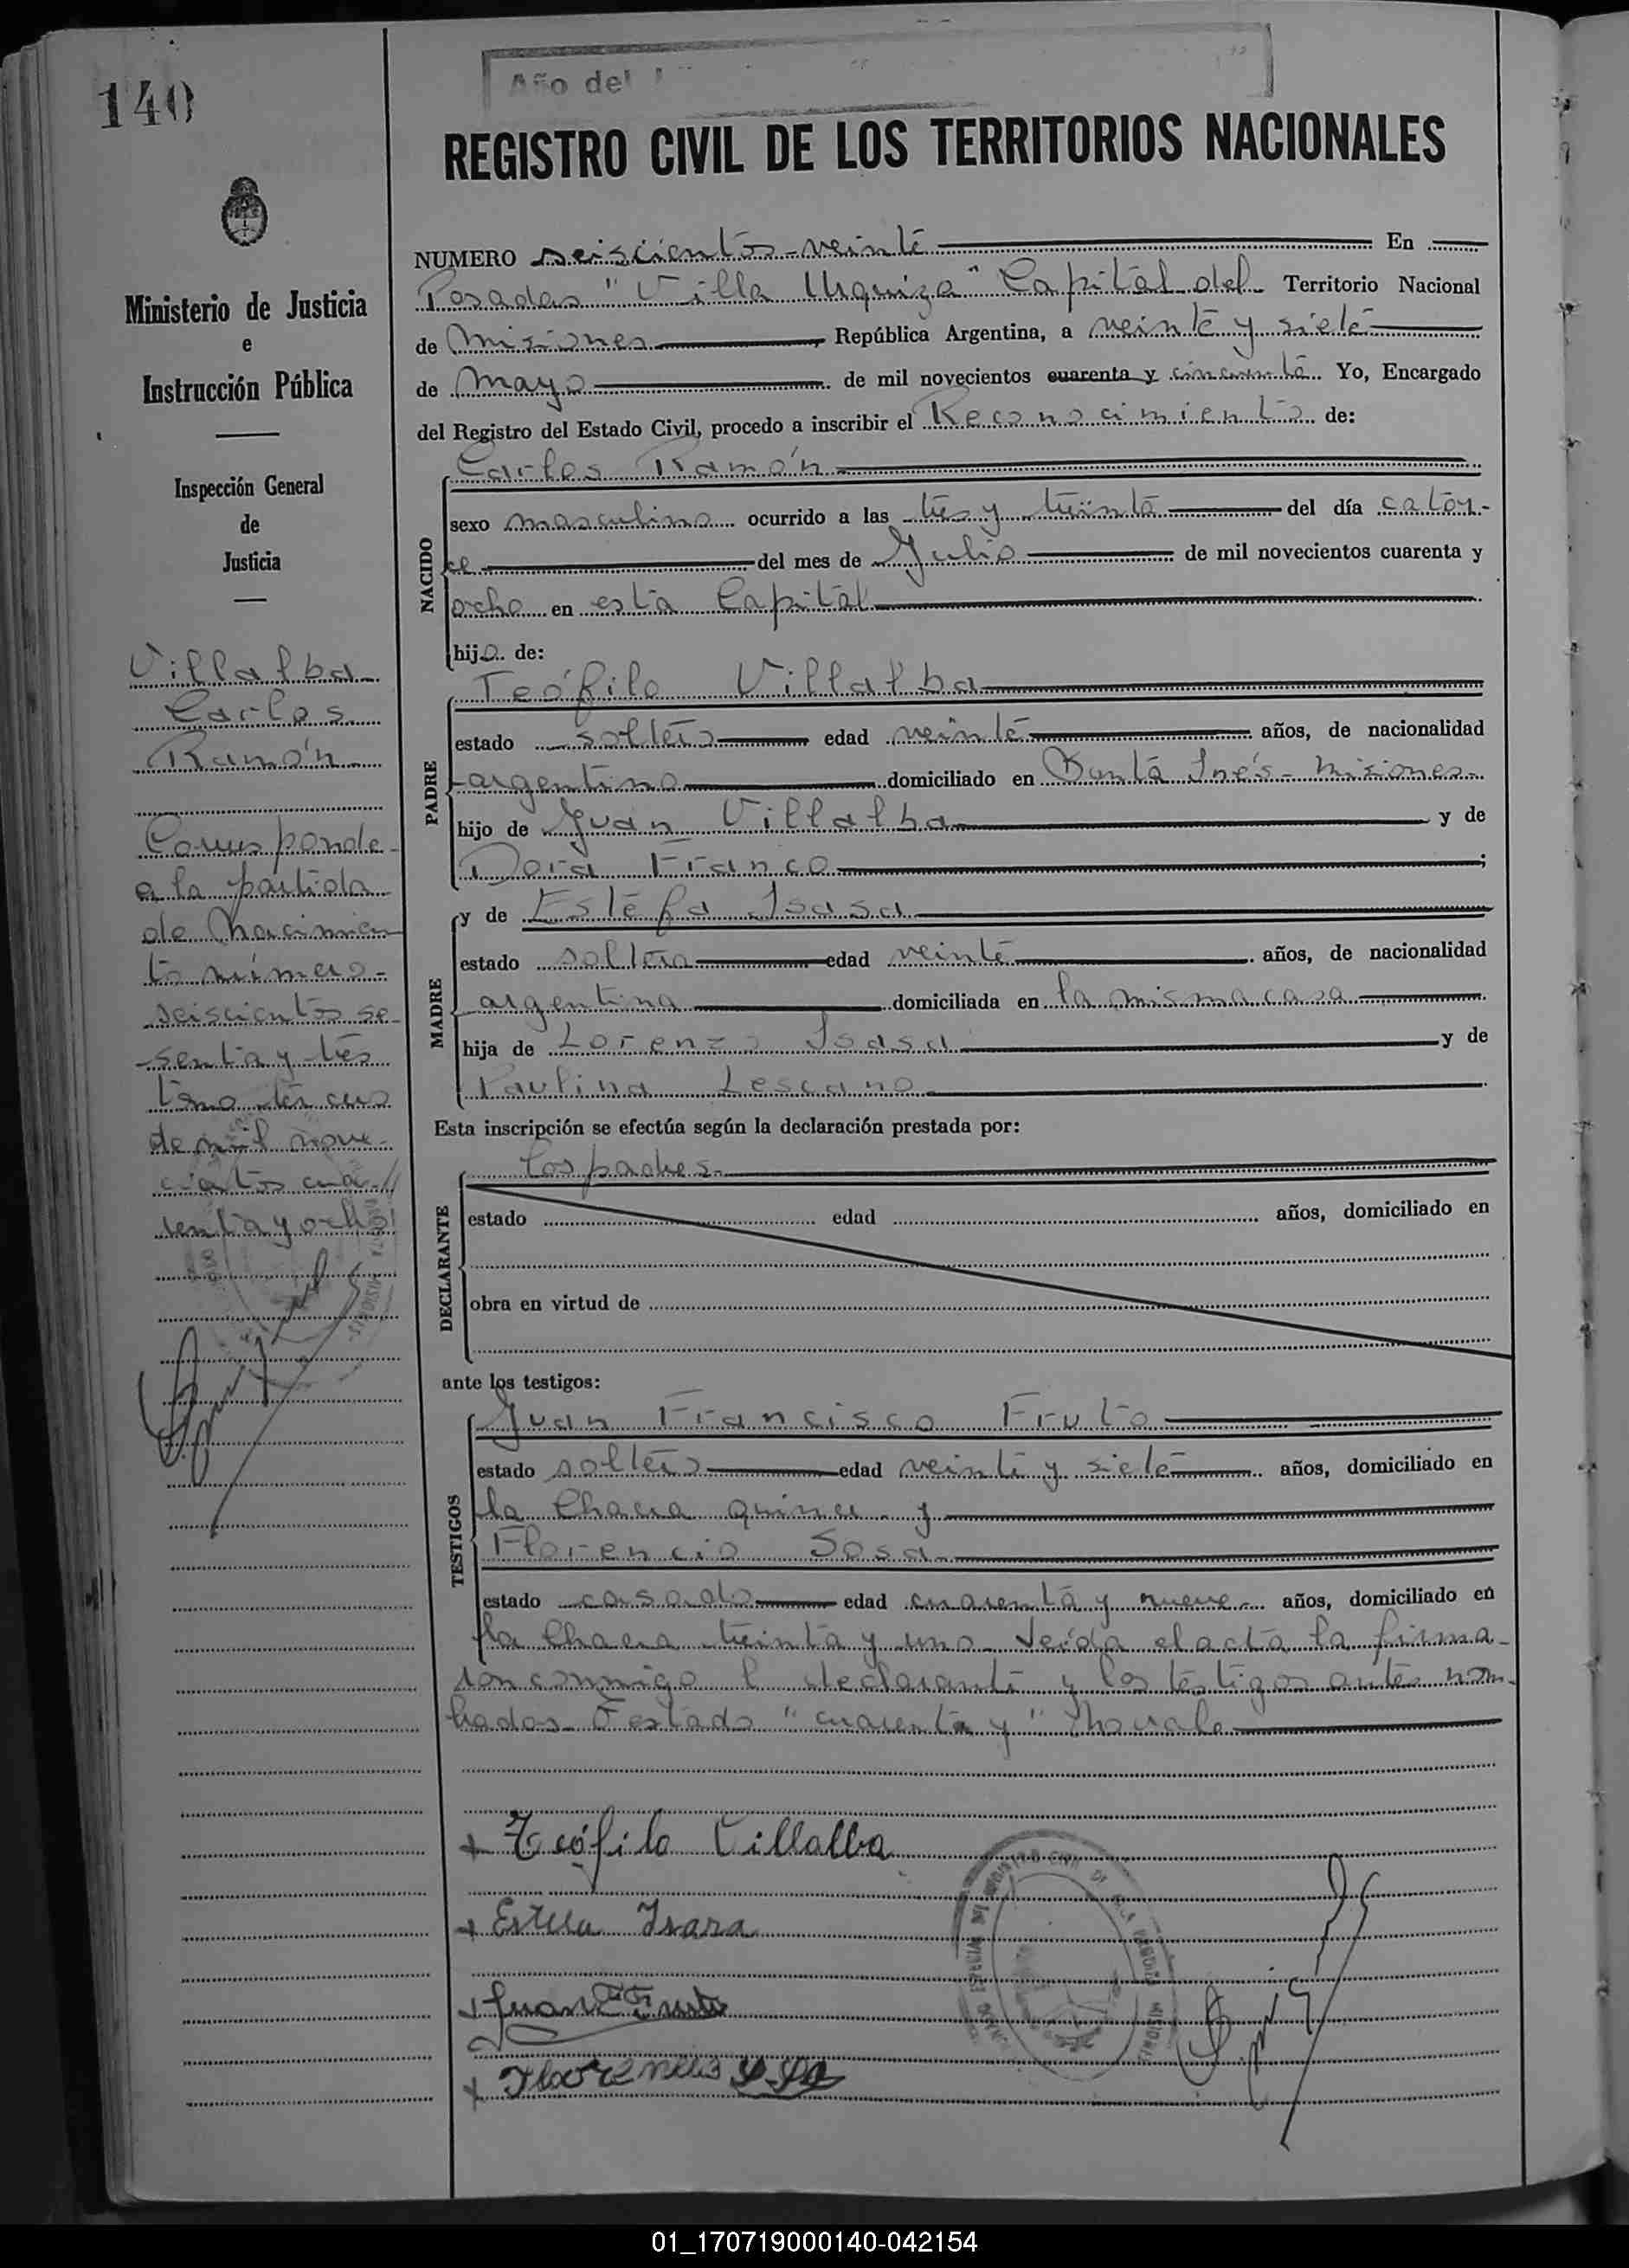 140
Año del
REGISTRO CIVIL DE LOS TERRITORIOS NACIONALES
Ministerio de Justicia
e
Instrucción Pública
Inspección General
de
Justicia
Villalba
Carlos
Ramón
Corresponde
a la partida
de nacimien
to número
seiscientos se
senta y tres
tomo tercero
de mil nove-
cientos cua-
renta y ocho
NUMERO seiscientos veinte En
Posadas "Villa Urquiza" Capital del Territorio Nacional
de Misiones, República Argentina, a veinte y siete
de mayo de mil novecientos cuarenta y cincuenta. Yo, Encargado
del Registro del Estado Civil, procedo a inscribir el Reconocimiento de:
Carlos Ramón
NACIDO
sexo masculino ocurrido a las tres y treinta del día cator-
ce del mes de Julio de mil novecientos cuarenta y
ocho en esta Capital
hijo de:
Teófilo Villalba
PADRE
estado soltero edad veinte años, de nacionalidad
argentino domiciliado en Santa Inés - Misiones-
hijo de Juan Villalba y de
Dora Franco;
MADRE
y de Estefa Isasa
estado soltera edad veinte años, de nacionalidad
argentina domiciliada en la misma casa
hija de Lorenzo Isasa y de
Paulina Lescano
Esta inscripción se efectúa según la declaración prestada por:
los padres
DECLARANTE
estado edad años, domiciliado en
obra en virtud de
ante los testigos:
Juan Francisco Fruto
TESTIGOS
estado soltero edad veinte y siete años, domiciliado en
la Chacra quince y
Florencio Sosa
estado casado edad cuarenta y nueve años, domiciliado en
la Chacra treinta y uno. Leída el acta la firma-
ron conmigo l declarante y los testigos antes nom-
brados. Testado "cuarenta y" No vale
+ Teófilo Villalba
+ Isasa
+ Juan F Fruto
+ Florencio Sosa
01_170719000140-042154